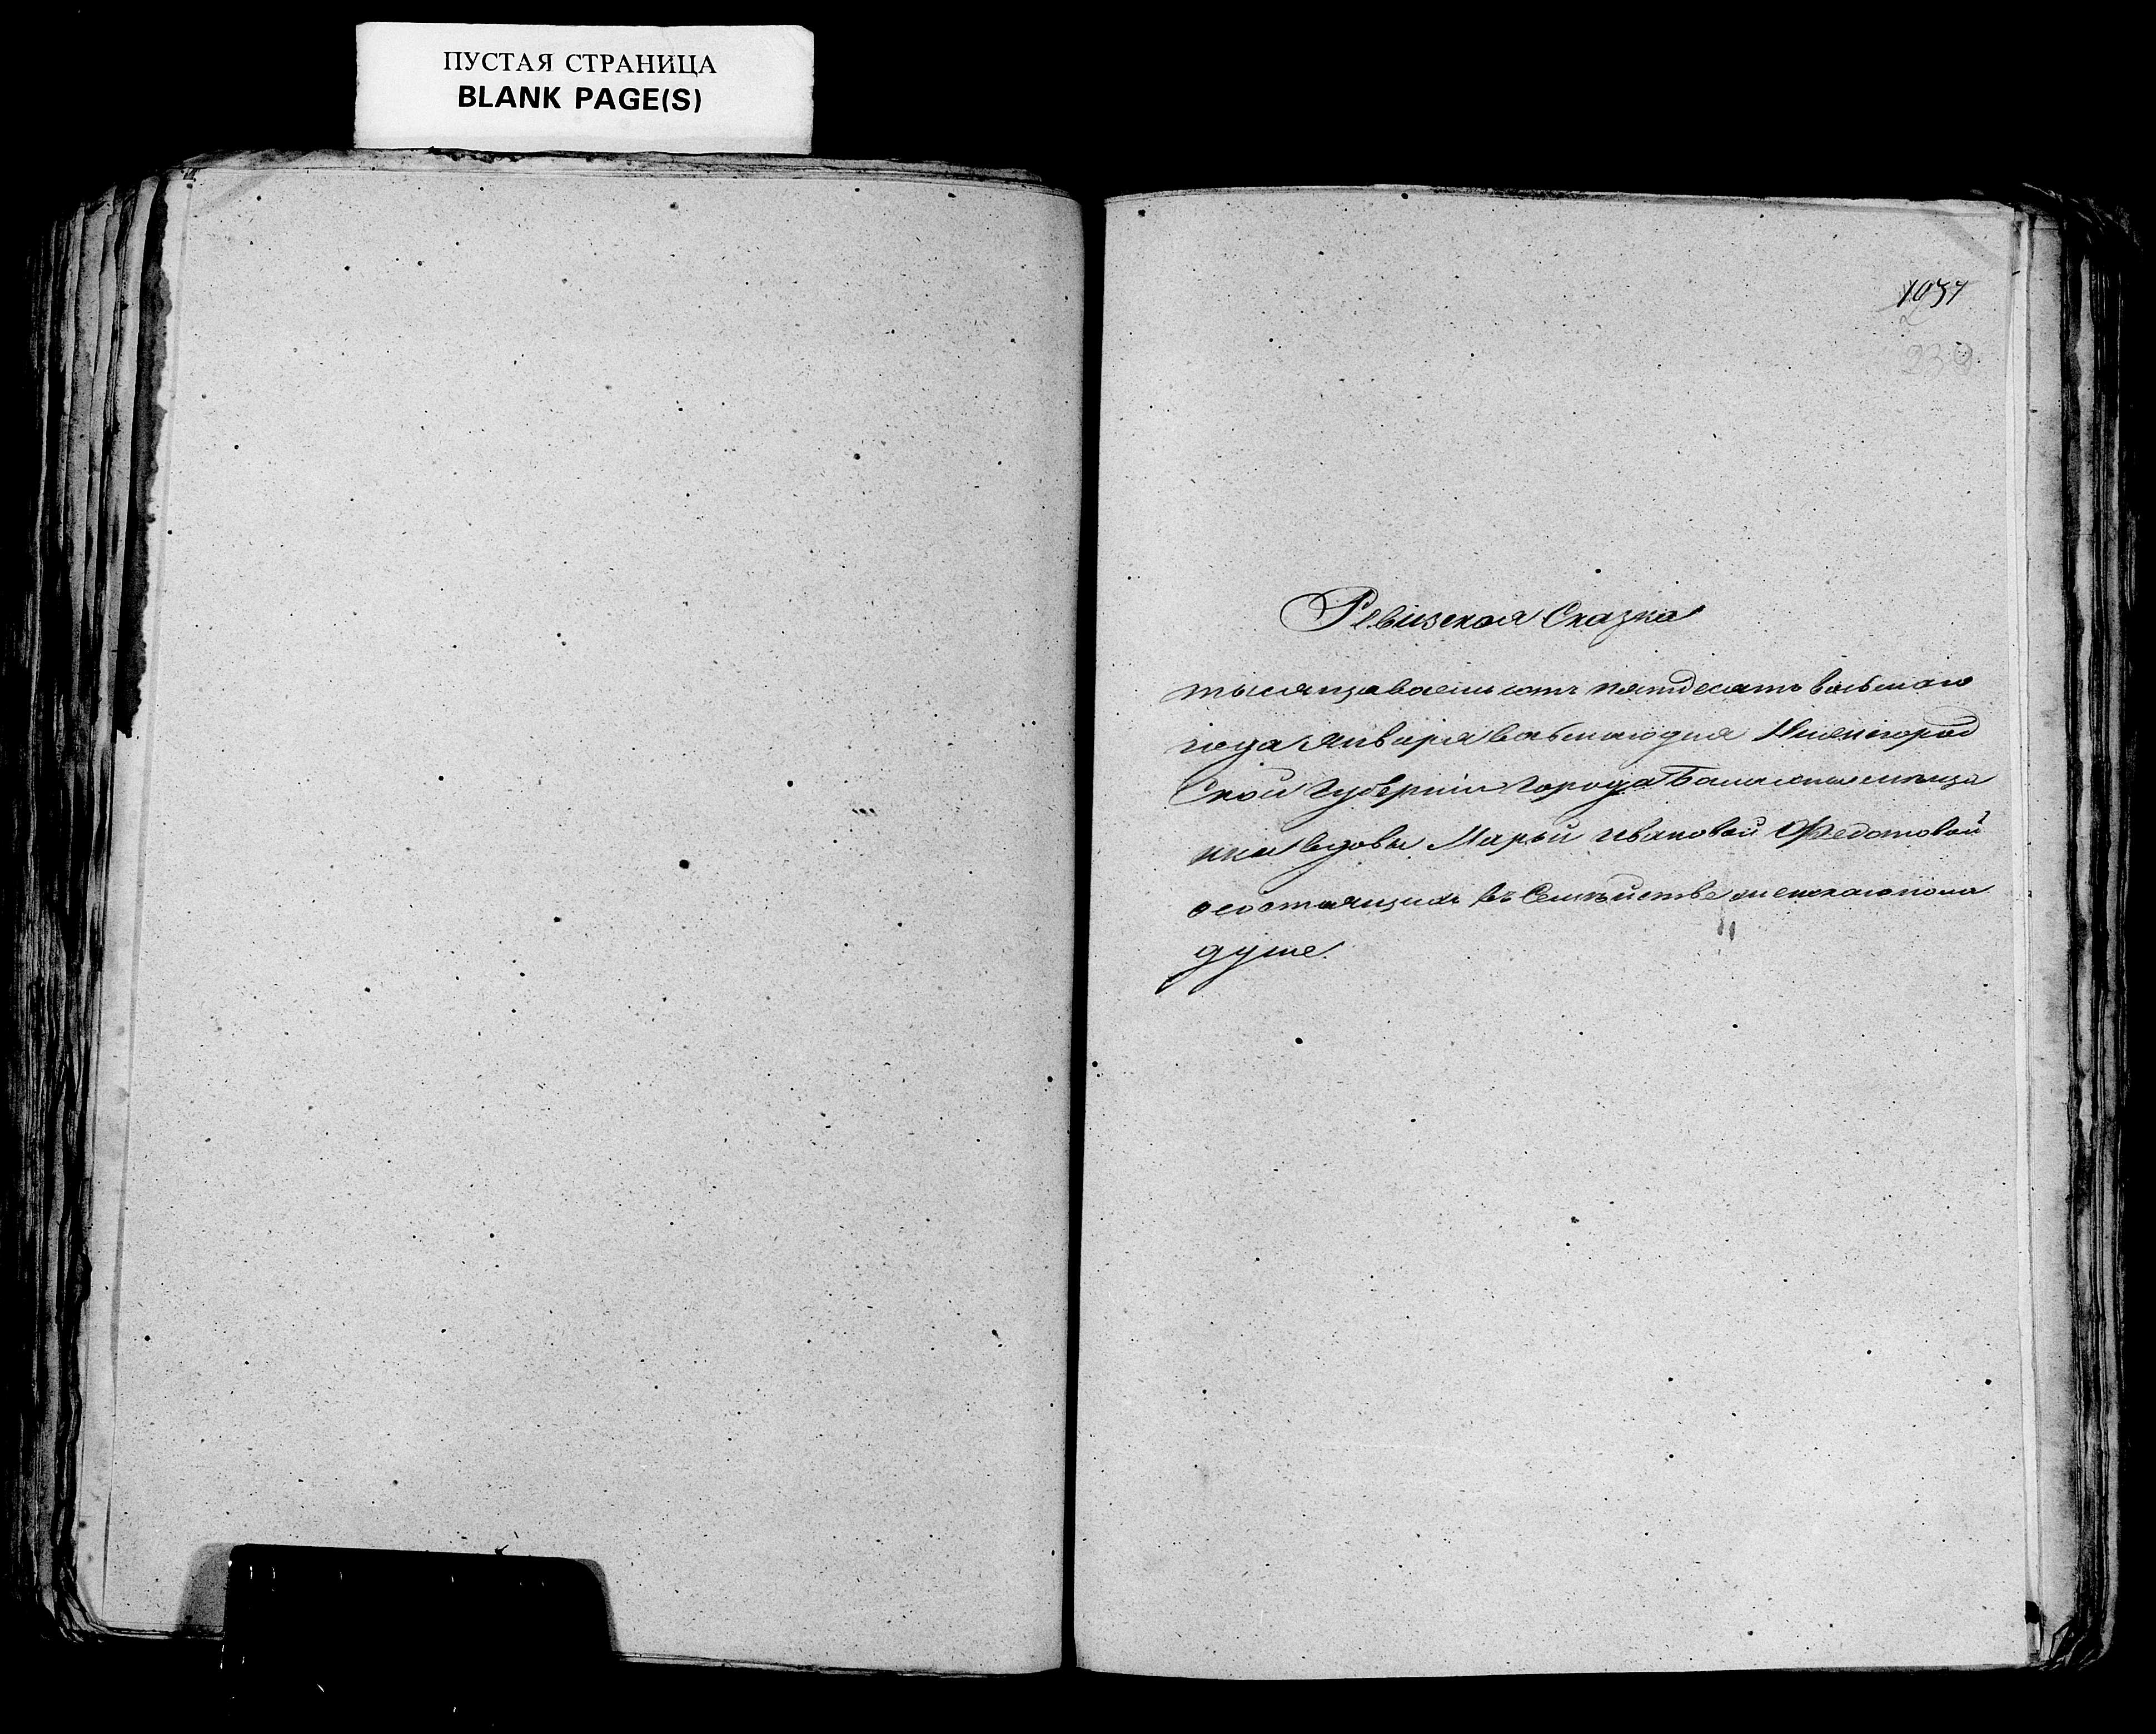 ПУСТАЯ СТРАНИЦА
BLANK PAGE(S)
1037
239
Ревизская Сказка
тысяща восемь сотъ пятдесятъ восьмаго
года Января восьмаго дня Нижегород
Ской Губерніи Города Балахны мѣща
нки вдовы Марьи Ивановой Федотовой
о состоящихъ въ Семѣйстве женскаго пола
душе.